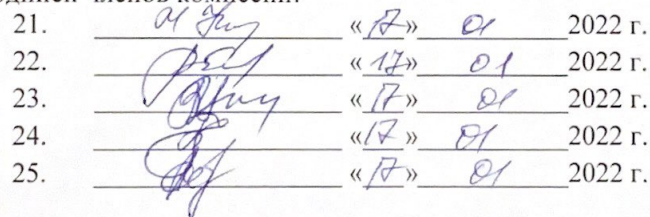 членов комиссии:
21. «17» 01 2022 г.
22. «17» 01 2022 г.
23. «17» 01 2022 г.
24. «17» 01 2022 г.
25. «17» 01 2022 г.